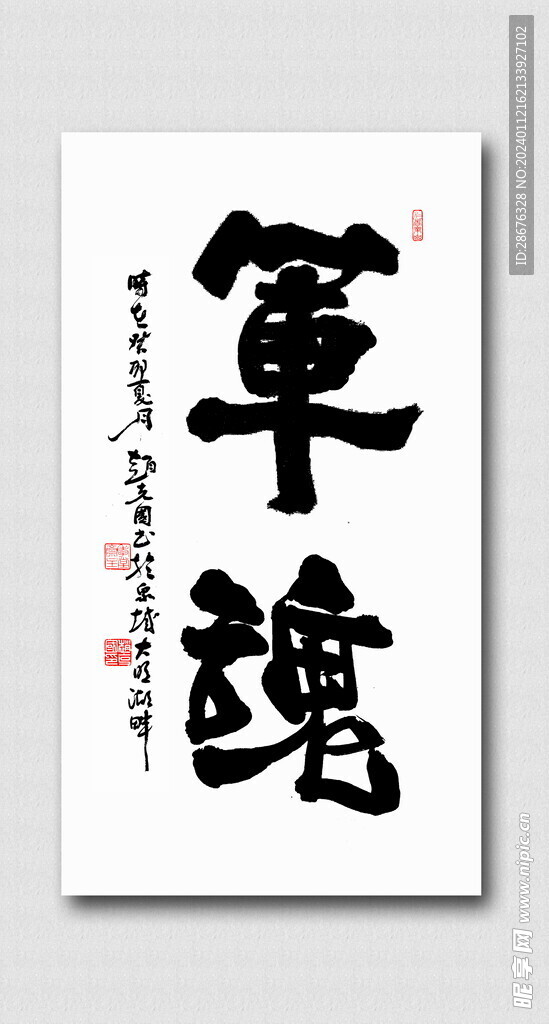 軍魂
時在癸卯夏月
趙克國书於泉城大明湖畔
ID:28676328 NO:20240112162133927102
昵享网 www.nipic.cn